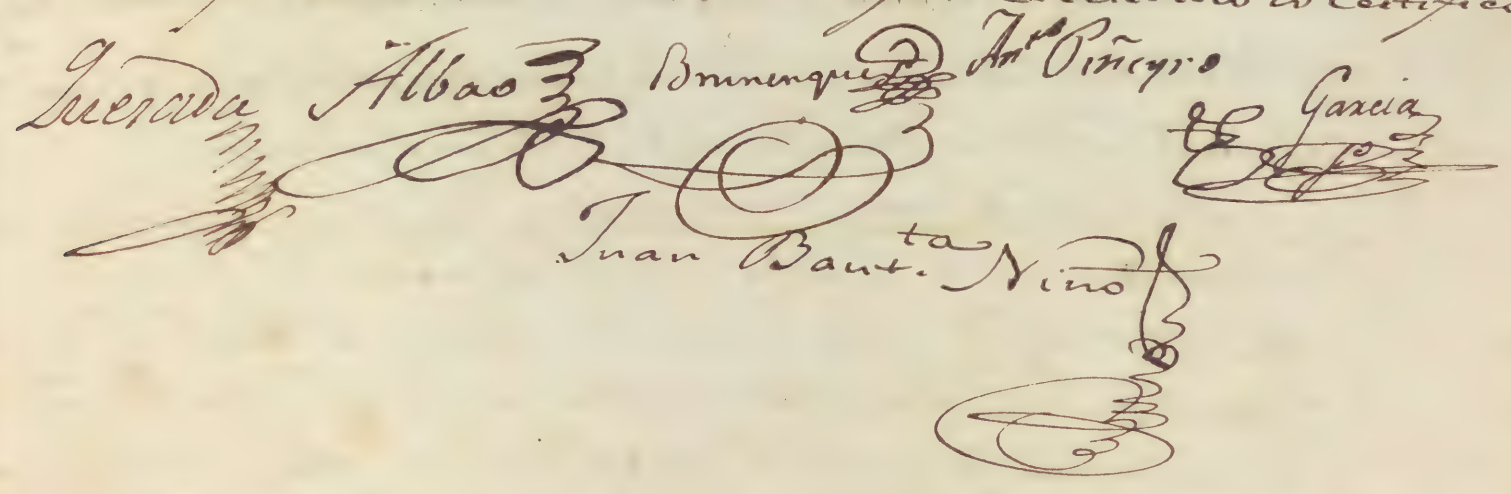 certifico
Quesada Albao Brunenque Ant.º Piñeyro
Garcia
Juan Baut.ta Niño